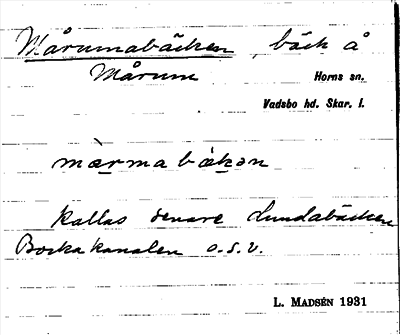 Mårumabäcken, bäck å
Mårum
Horns sn.
Vadsbo hd. Skar. l.
mὰrmabækən
kallas senare Lundabäcken
Bockakanalen o.s.v.
L. MADSÉN 1931